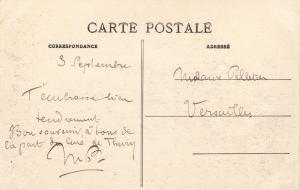 CARTE POSTALE
CORRESPONDANCE
ADRESSÉ
3 Septembre
T'embrasse bien
tendrement
Bon souvenir à tous de
la part du Curé de Thury
Madame Pelletier
Versailles